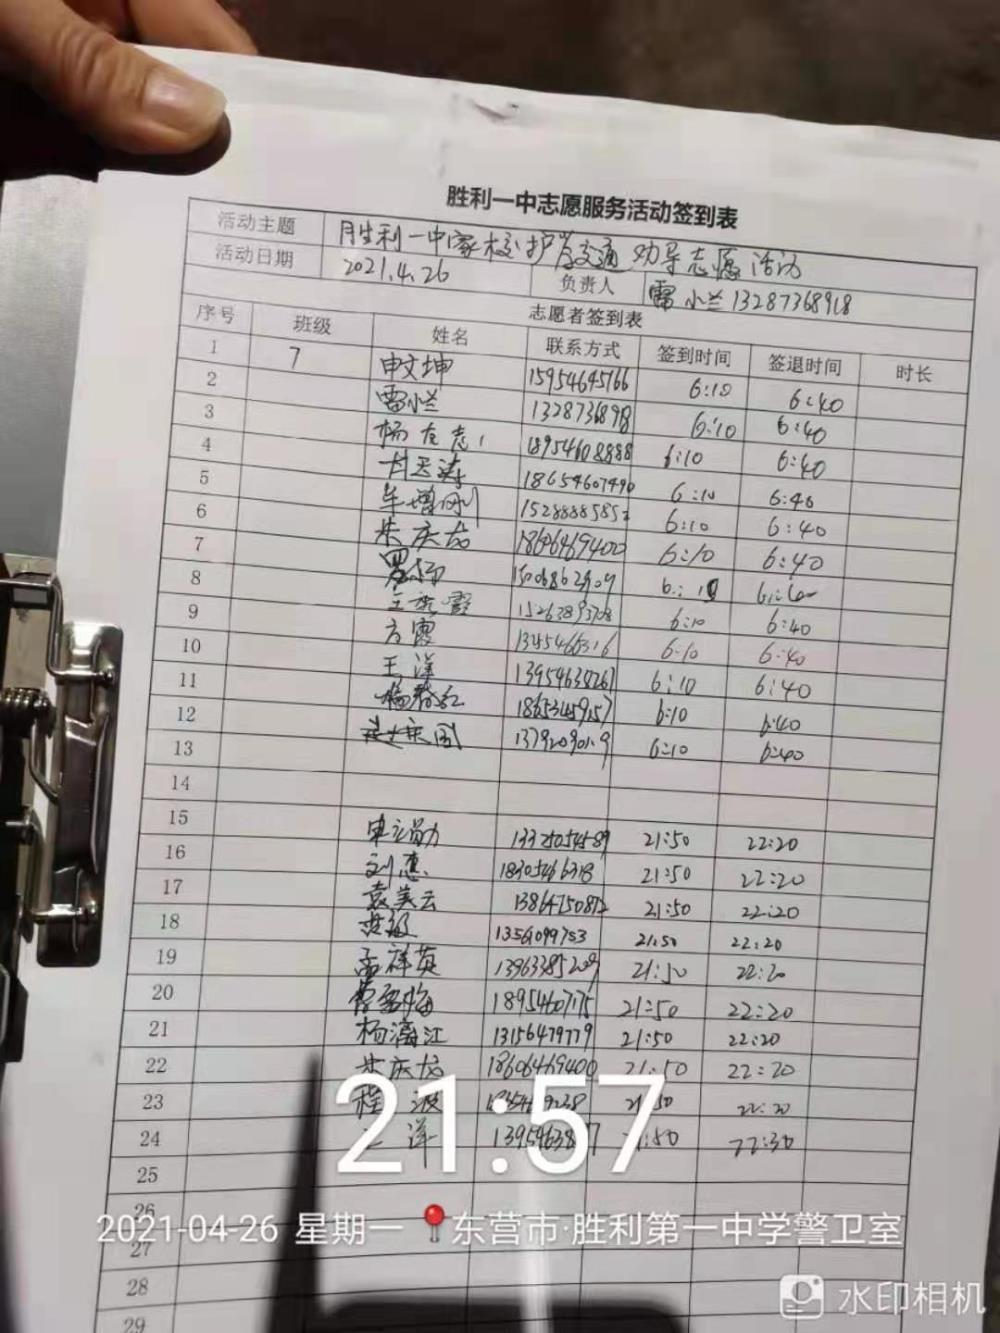 胜利一中志愿服务活动签到表
活动主题 胜利一中家校护学交通劝导志愿活动
活动日期 2021.4.26 负责人 雷小兰13287368918
志愿者签到表
序号 班级 姓名 联系方式 签到时间 签退时间 时长
1 7 申文坤 15954645766 6:10 6:40
2 雷小兰 1328736898 6:10 6:40
3 杨在志 18954608888 6:10 6:40
4 18654607490 6:10 6:40
5 车增刚 6:10 6:40
6 朱庆龙 18606469400 6:10 6:40
7 6:10
8 6:10 6:40
9 方霞 6:10 6:40
10 王洋 6:10 6:40
11 杨春红 6:10 6:40
12 6:10 6:40
13
14
15 13325054589 21:50 22:20
16 刘惠 18305466318 21:50 22:20
17 袁美云 21:50 22:20
18 21:50 22:20
19 孟祥英 13963385209 21:50 22:20
20 18954607175 21:50 22:20
21 杨漓江 13156479779 21:50 22:20
22 朱庆龙 18606469400 21:50 22:20
23 程波 22:20
24 洋 22:30
25
26
27
28
29
21:57
2021-04-26 星期一 东营市·胜利第一中学警卫室
水印相机